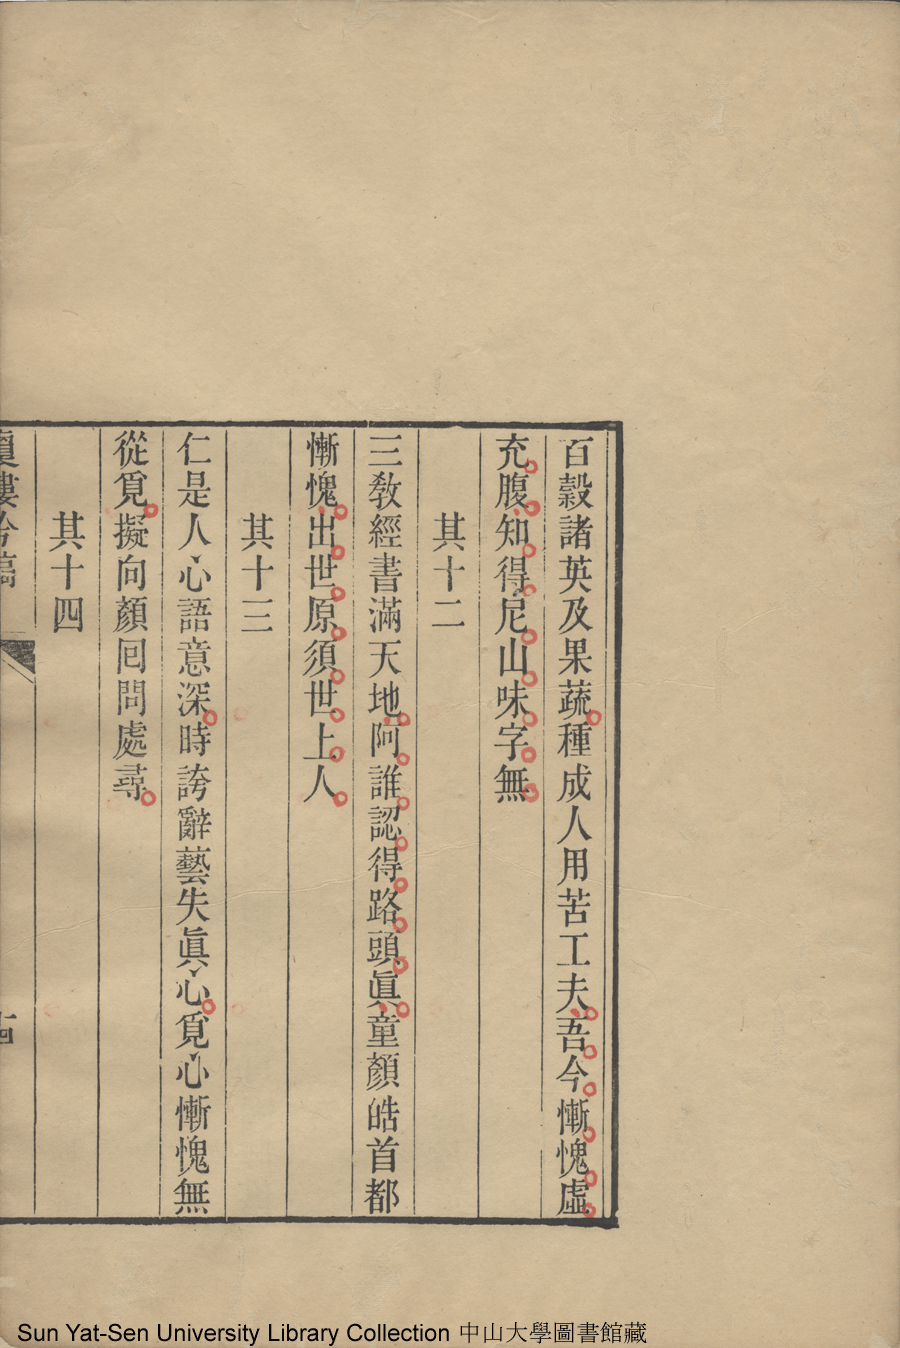 百榖諸英及果蔬種成人用苦工夫吾今慚愧虛
充腹知得尼山味字無
其十二
三教經書滿天地阿誰認得路頭眞童顏皓首都
慚愧出世原須世上人
其十三
仁是人心語意深時誇辭藝失眞心覓心慚愧無
從覓擬向顏囘問處尋
其十四
吟稿
Sun Yat-Sen University Library Collection 中山大學圖書館藏